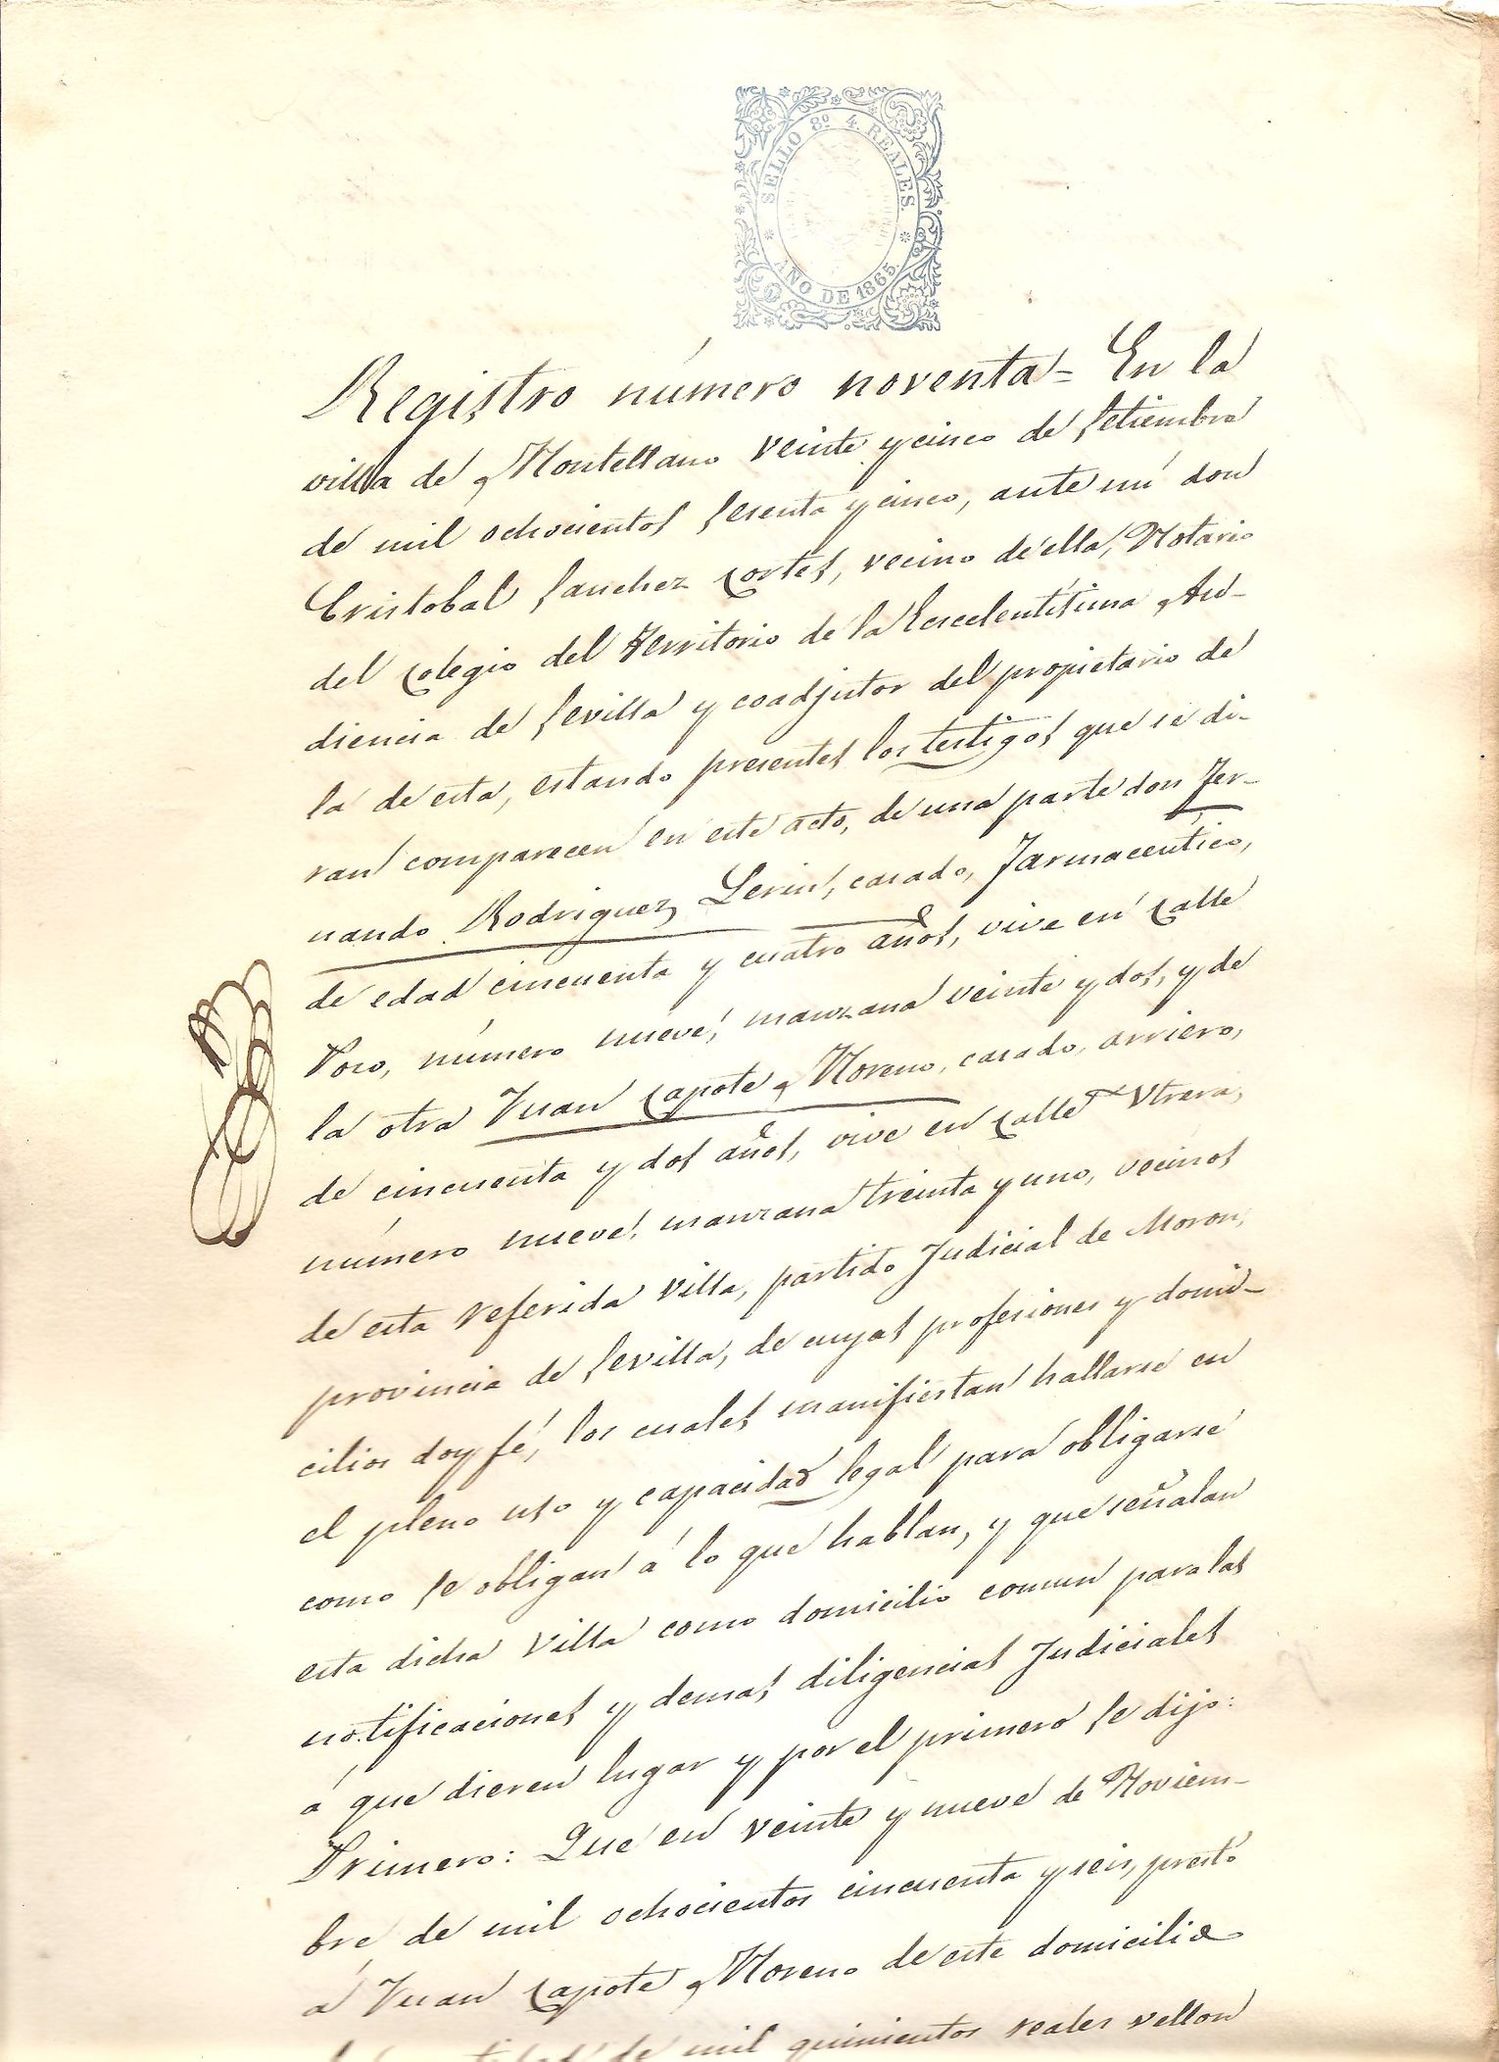 SELLO 8º 4. REALES.
AÑO DE 1865.
Registro número noventa = En la
villa de Montellano veinte y cinco de Setiembre
de mil ochocientos sesenta y cinco, ante mí don
Cristobal Sanchez Cortes, vecino de ella, Notario
del Colegio del Territorio de la Escelentísima Au-
diencia de Sevilla y coadjutor del propietario de
la de esta, estando presentes los testigos que se di-
ran comparecen en este acto, de una parte don Fer-
nando Rodriguez Lerin, casado, Farmaceútico,
de edad cincuenta y cuatro años, vive en Calle
Pozo, número nueve, manzana veinte y dos, y de
la otra Juan Zapote Moreno, casado, arriero,
de cincuenta y dos años, vive en Calle Utrera,
número nueve, manzana treinta y uno, vecinos
de esta referida Villa, partido Judicial de Moron,
provincia de Sevilla, de cuyas profesiones y domi-
cilios doy fé, los cuales manifiestan hallarse en
el pleno uso y capacidad legal para obligarse
como se obligan á lo que hablan, y que señalan
esta dicha Villa como domicilio comun para las
notificaciones y demas diligencias Judiciales
á que dieren lugar y por el primero se dijo:
Primero: Que en veinte y nueve de Noviem-
bre de mil ochocientos cincuenta y seis, prestó
á Juan Zapote Moreno de este domicilio
de mil quinientos reales vellon